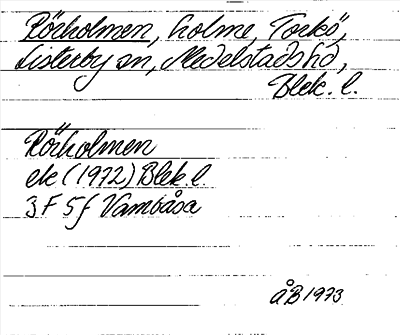 Rörholmen, holme, Torkö,
Listerby sn, Medelstads hd,
Blek. l.
Rörholmen
ek (1972) Blek. l.
3 F 5 f Vambåsa
ÅB 1973